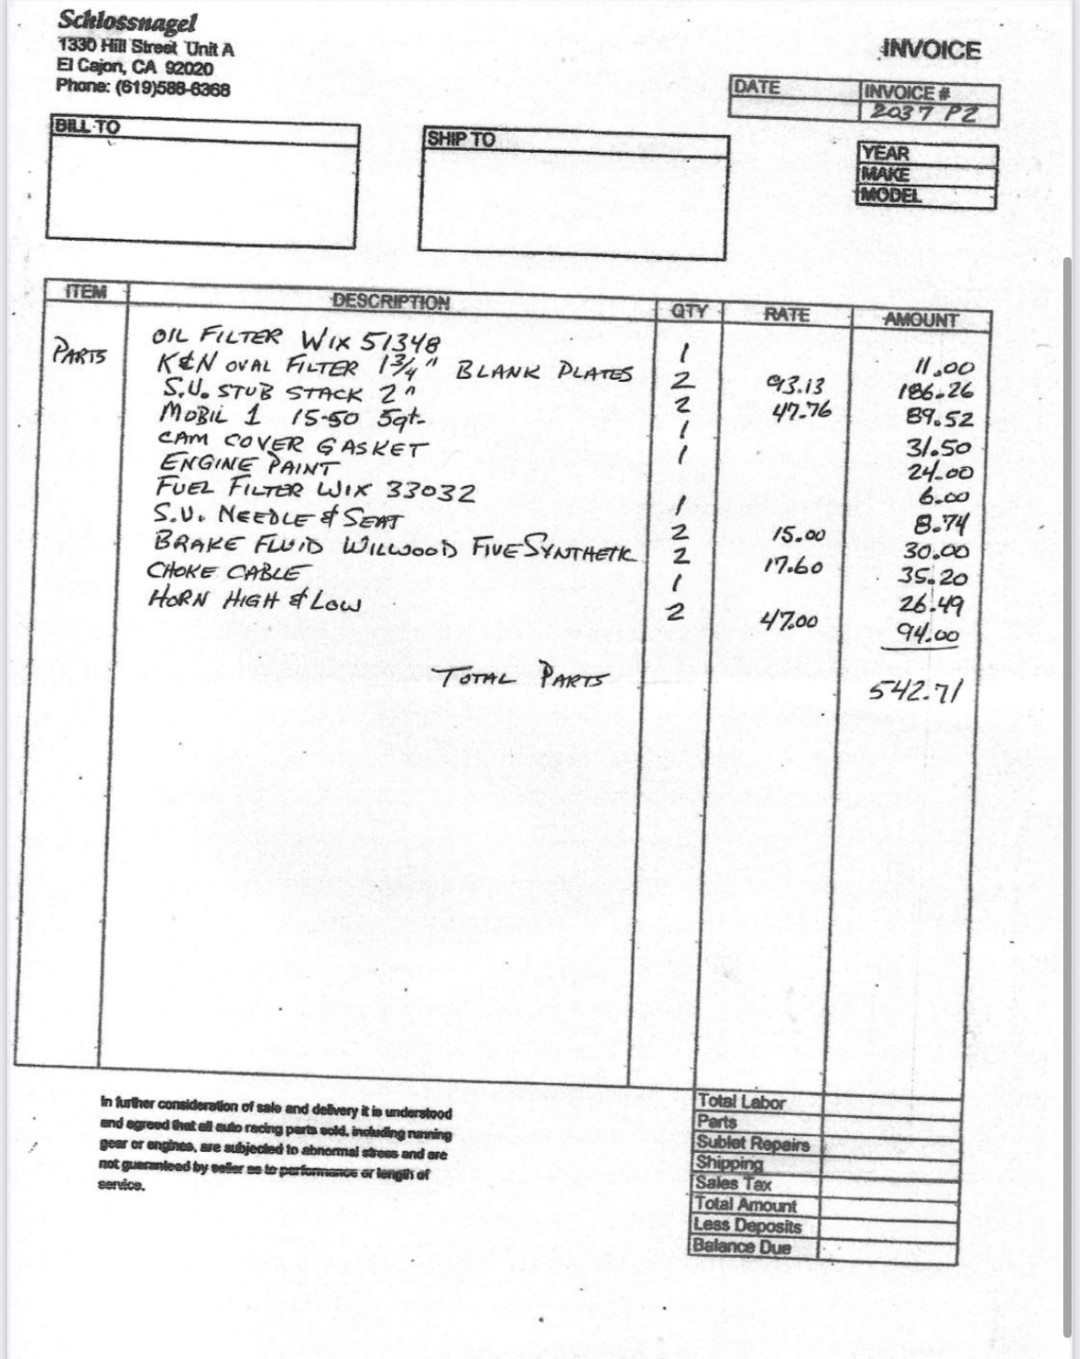 Schlossnagel
1330 Hill Street Unit A
El Cajon, CA 92020
Phone: (619)588-6368
INVOICE
DATE INVOICE #
2037 P2
BILL TO
SHIP TO
YEAR
MAKE
MODEL
ITEM DESCRIPTION QTY RATE AMOUNT
PARTS OIL FILTER WIX 51348 1 11.00
K&N OVAL FILTER 1 3/4" BLANK PLATES 2 93.13 186.26
S.U. STUB STACK 2" 2 47.76 89.52
MOBIL 1 15-50 5qt. 1 31.50
CAM COVER GASKET 1 24.00
ENGINE PAINT 6.00
FUEL FILTER WIX 33032 1 8.74
S.U. NEEDLE & SEAT 2 15.00 30.00
BRAKE FLUID WILWOOD FIVE SYNTHETIC 2 17.60 35.20
CHOKE CABLE 1 26.49
HORN HIGH & LOW 2 47.00 94.00
TOTAL PARTS 542.71
In further consideration of sale and delivery it is understood
and agreed that all auto racing parts sold, including running
gear or engines, are subjected to abnormal stress and are
not guaranteed by seller as to performance or length of
service.
Total Labor
Parts
Sublet Repairs
Shipping
Sales Tax
Total Amount
Less Deposits
Balance Due